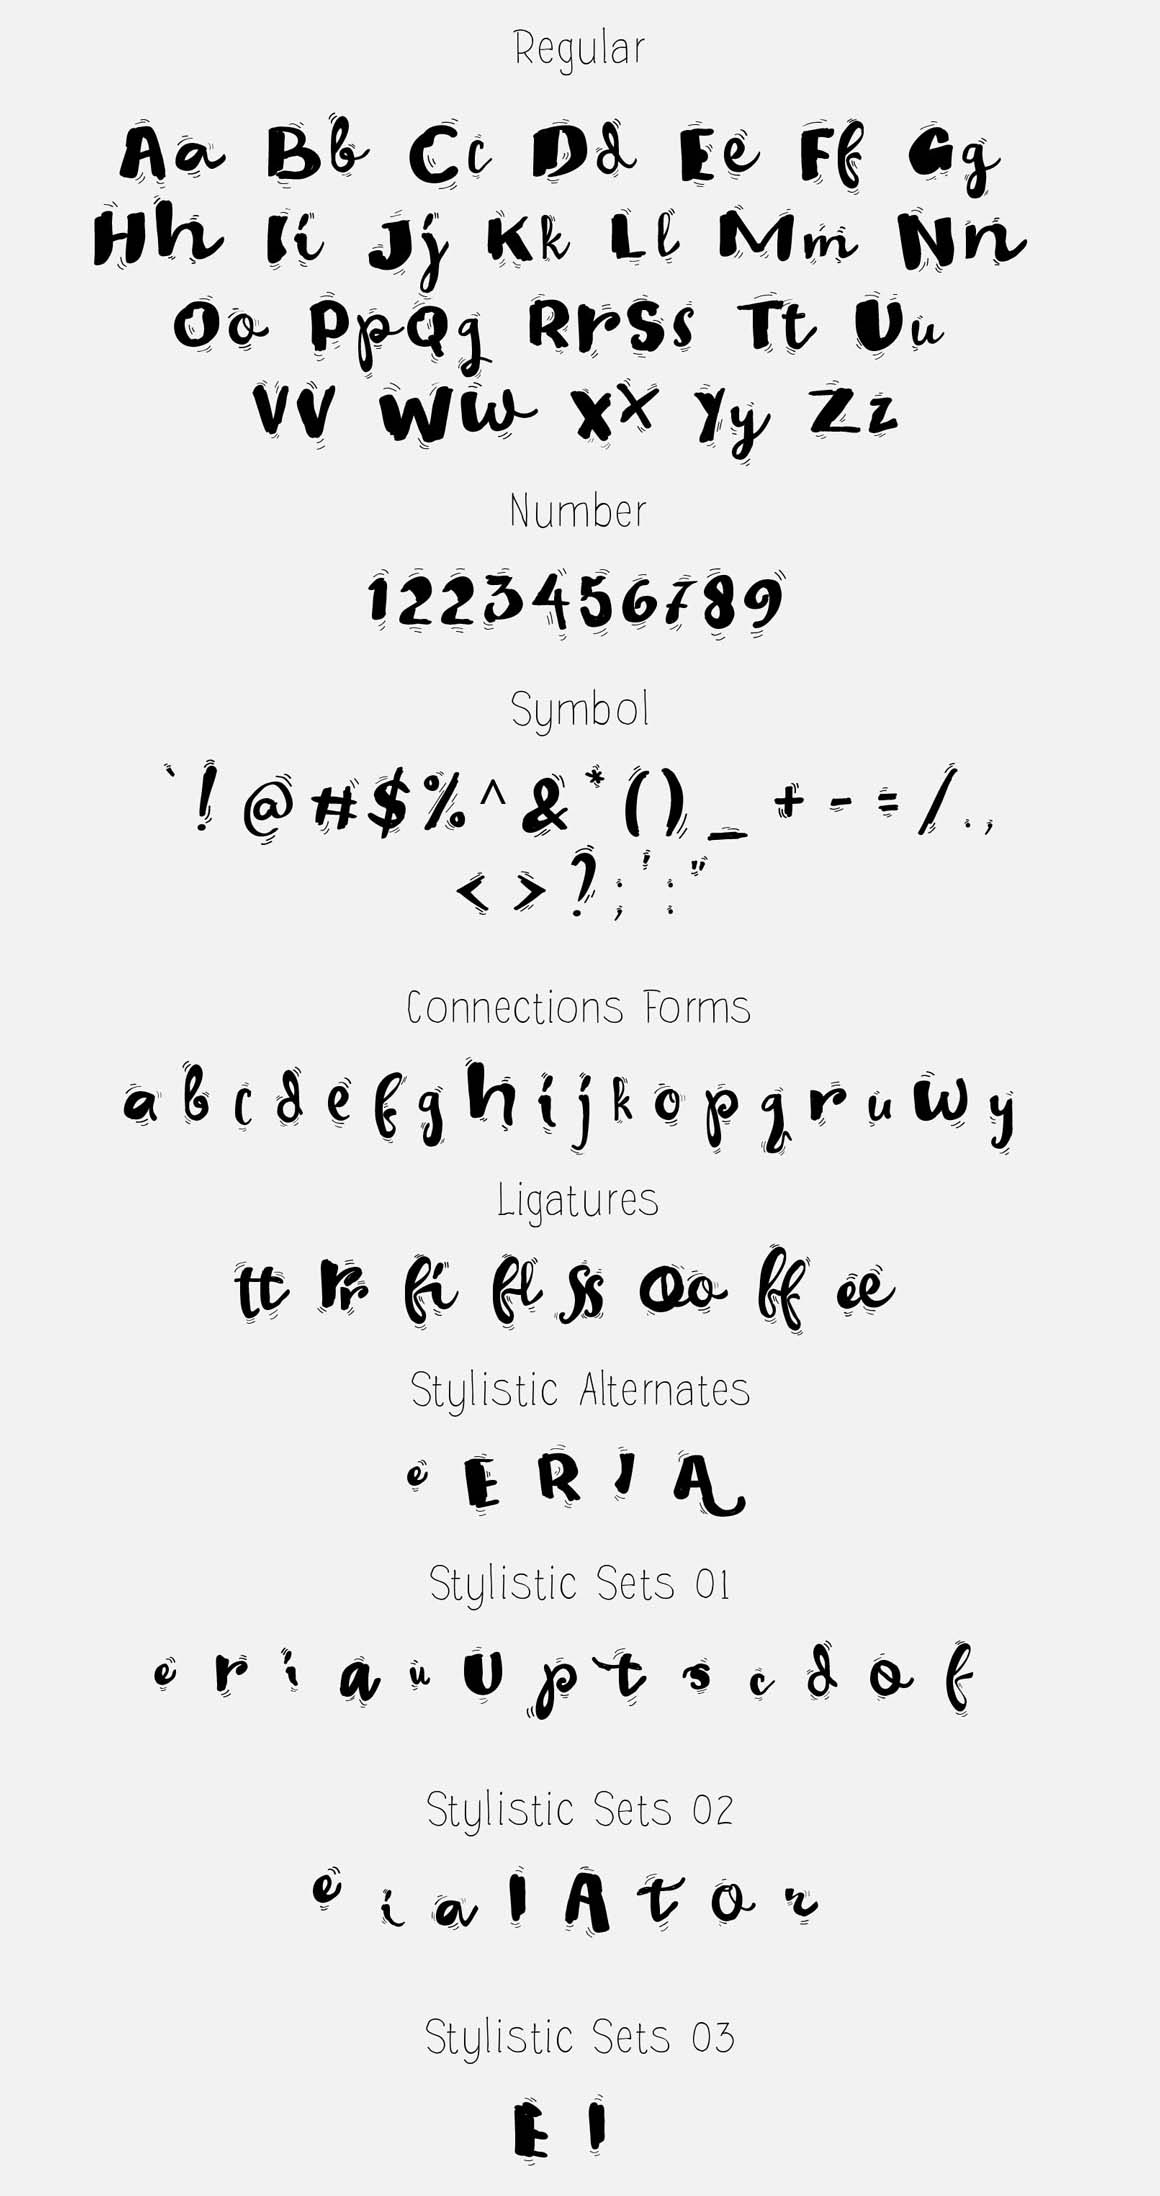 Regular
Aa Bb Cc Dd Ee Ff Gg
Hh Ii Jj Kk Ll Mm Nn
Oo Pp Qq Rr Ss Tt Uu
Vv Ww Xx Yy Zz
Number
1223456789
Symbol
` ! @ # $ % ^ & * ( ) _ + - = / . ,
< > ? ; ' : "
Connections Forms
a b c d e f g h i j k o p q r u w y
Ligatures
tt rr fi fl ss oo ff ee
Stylistic Alternates
e E R I A
Stylistic Sets 01
e r i a u U p t s c d o f
Stylistic Sets 02
e i a I A t o r
Stylistic Sets 03
E I